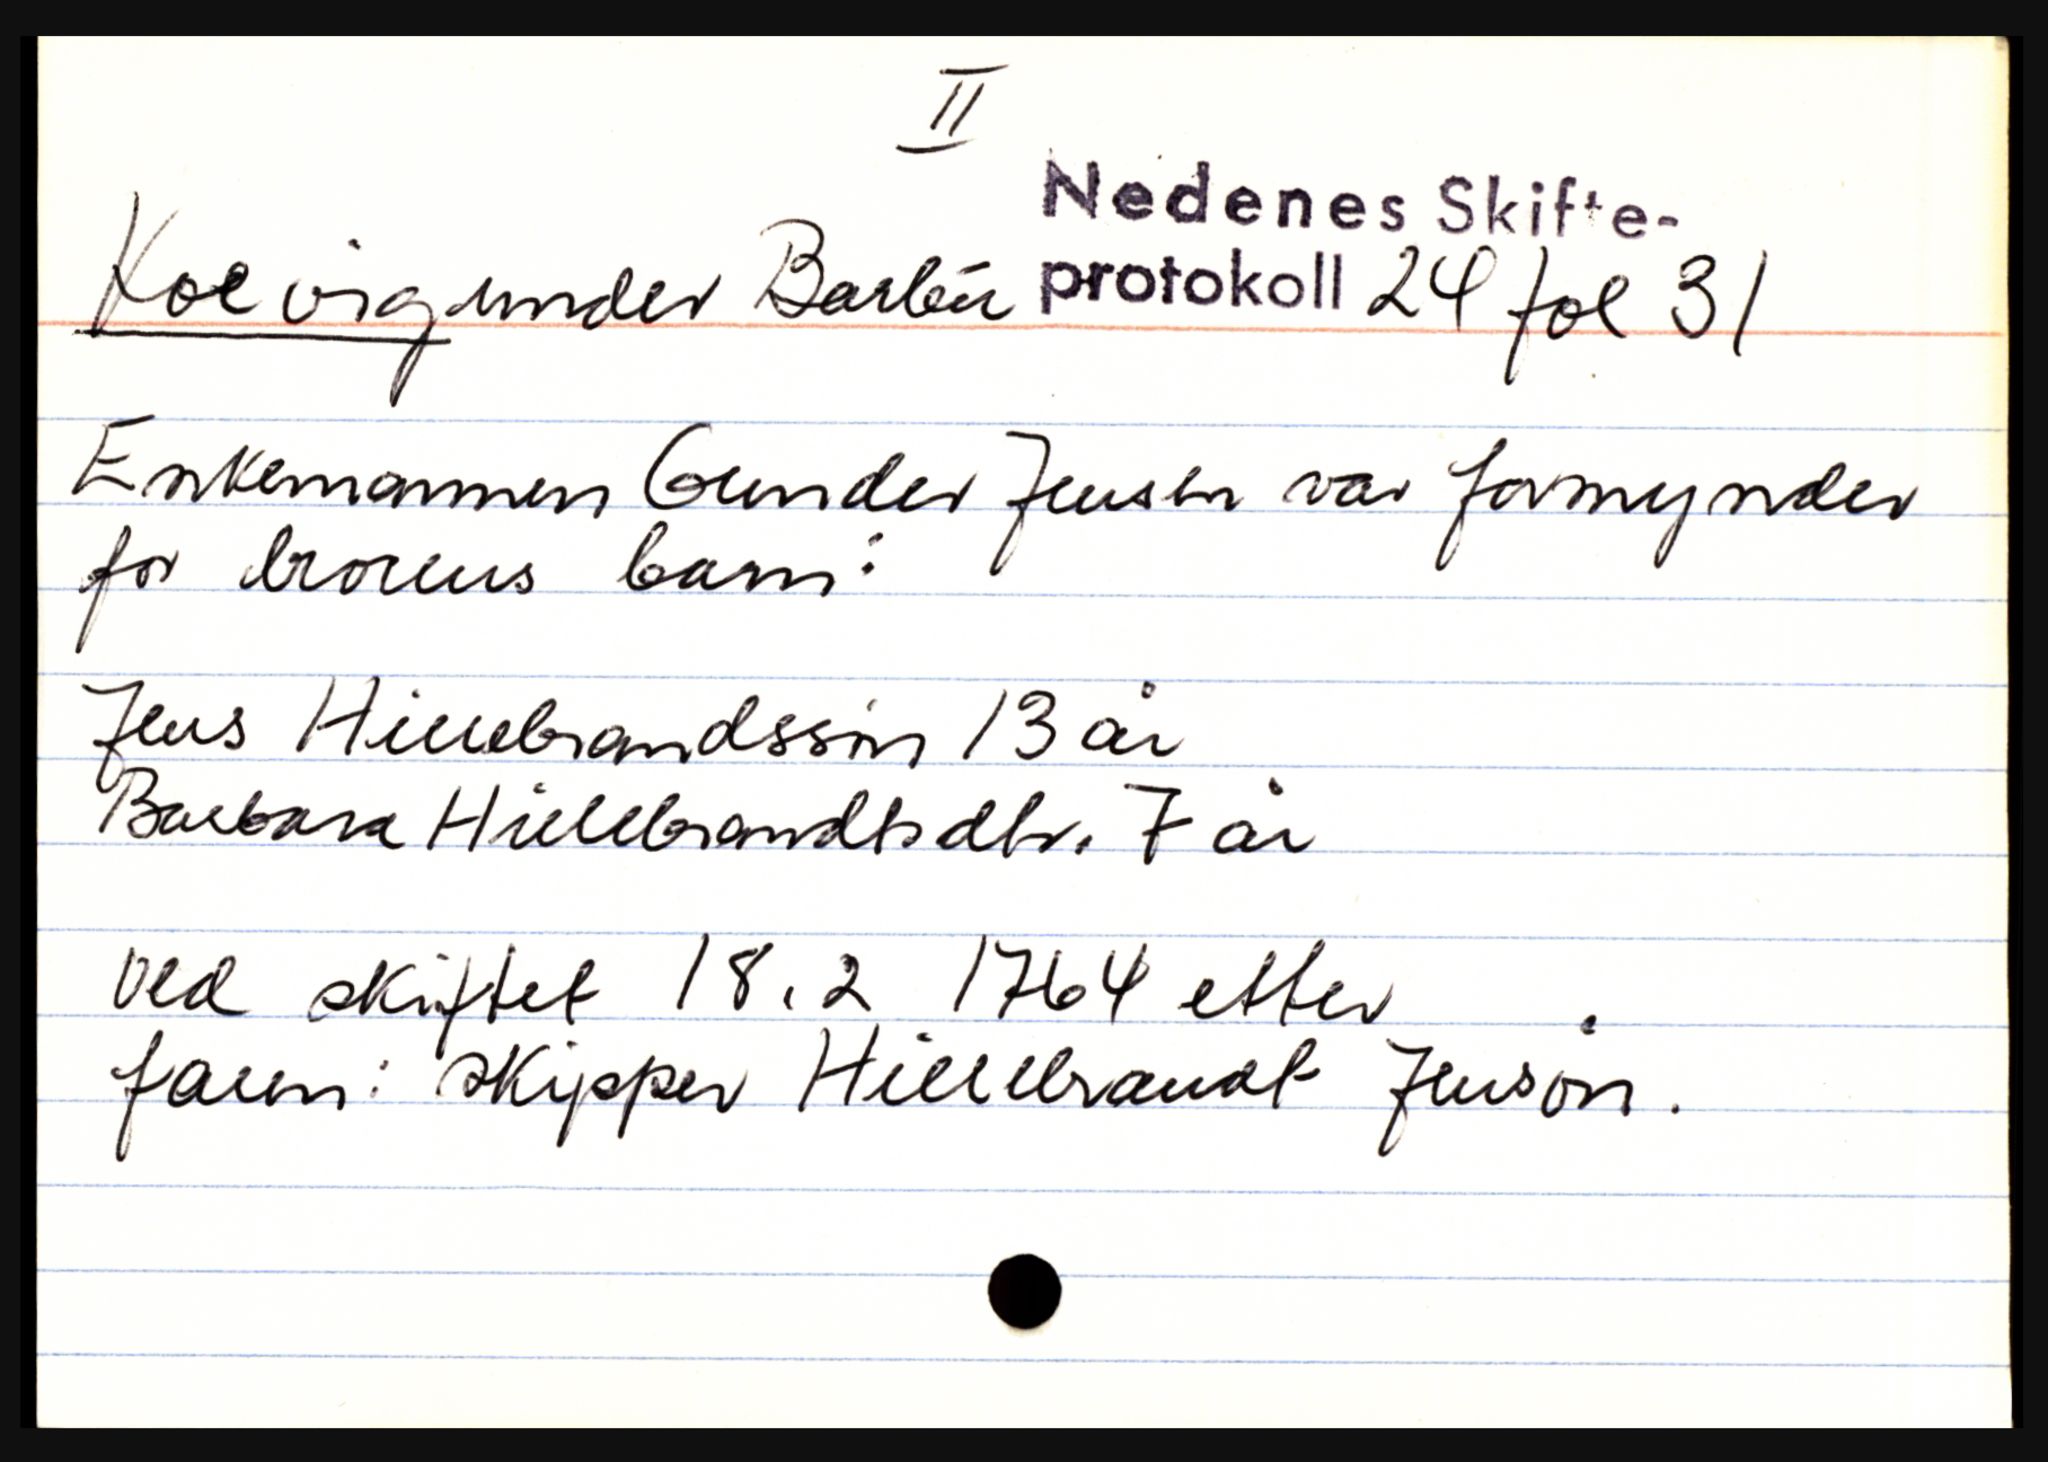 II
Nedenes Skifte-
Kolvig under Barbu protokoll 24 fol 31
Enkemannen Gunder Jensen var formynder
for brorens barn:
Jens Hillebrandssøn 13 år
Barbara Hillebrandtsdtr. 7 år
ved skiftet 18.2 1764 etter
faren: skipper Hillebrandt Jensøn.